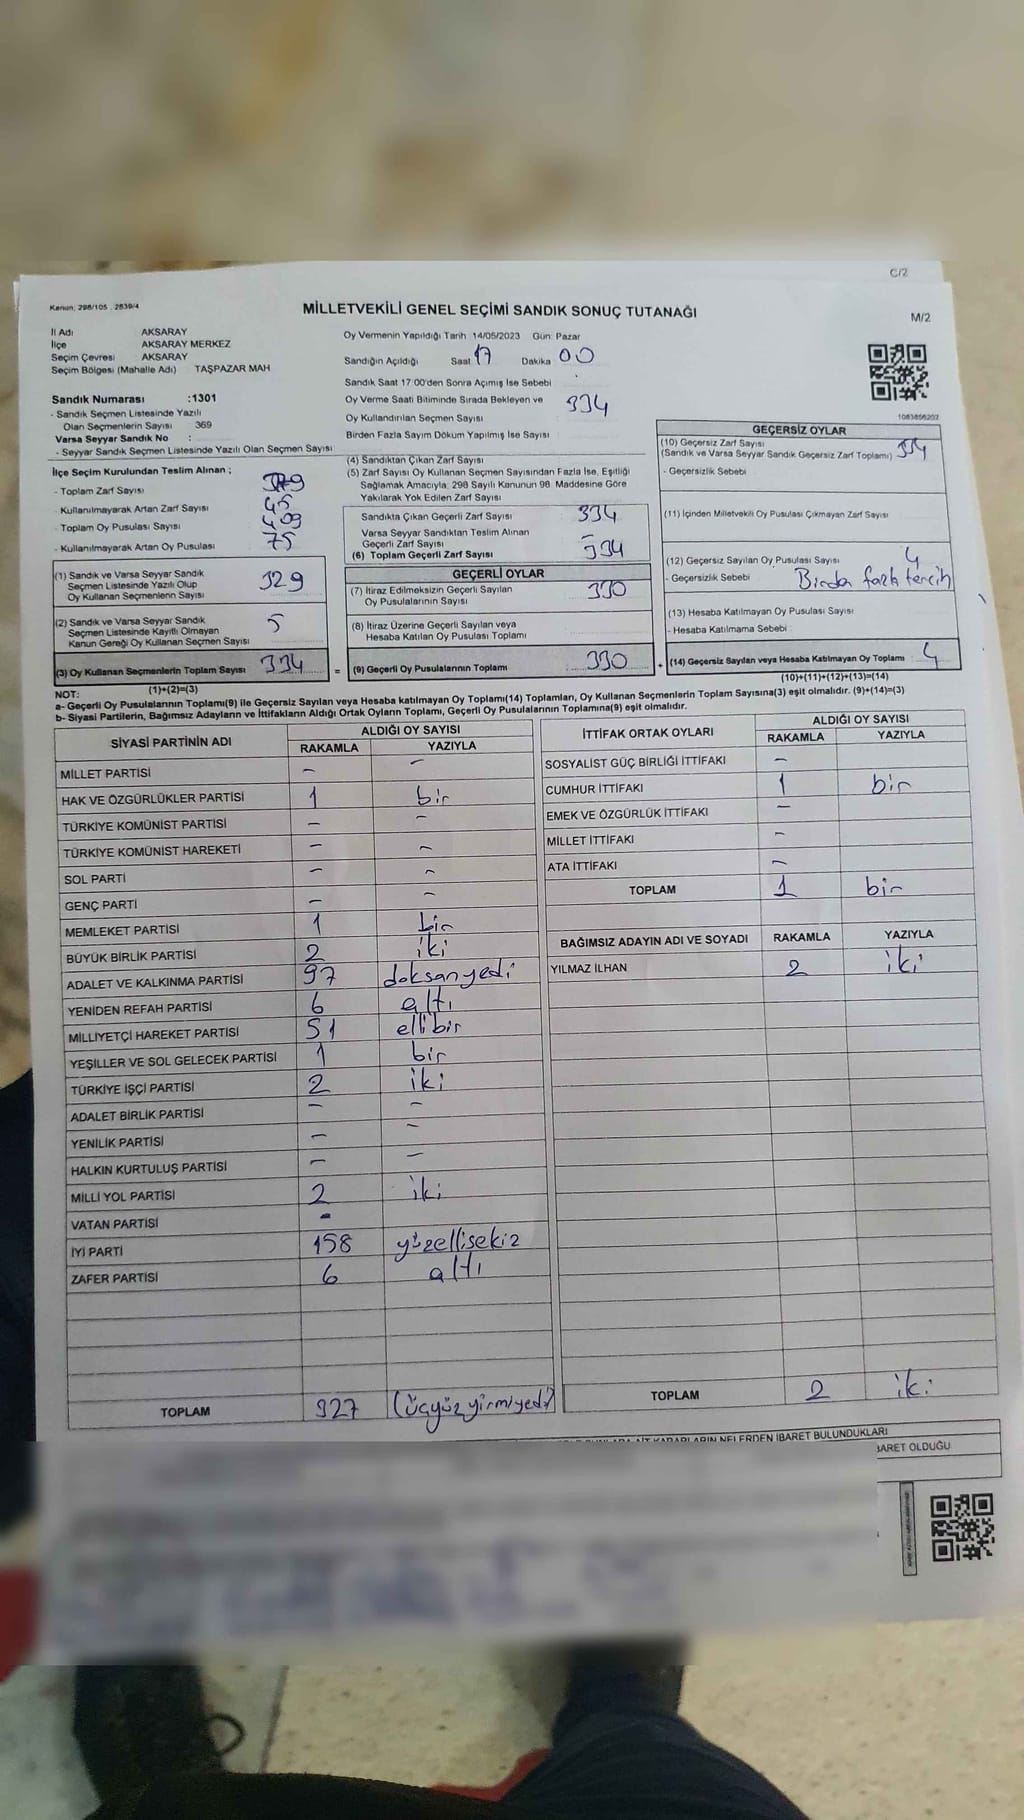 C/2
Kanun: 298/105 , 2839/4
MİLLETVEKİLİ GENEL SEÇİMİ SANDIK SONUÇ TUTANAĞI
M/2
İl Adı AKSARAY
İlçe AKSARAY MERKEZ
Seçim Çevresi AKSARAY
Seçim Bölgesi (Mahalle Adı) TAŞPAZAR MAH
Sandık Numarası :1301
- Sandık Seçmen Listesinde Yazılı
Olan Seçmenlerin Sayısı 369
Varsa Seyyar Sandık No :
- Seyyar Sandık Seçmen Listesinde Yazılı Olan Seçmen Sayısı
Oy Vermenin Yapıldığı Tarih 14/05/2023 Gün: Pazar
Sandığın Açıldığı Saat 17 Dakika 00
Sandık Saat 17:00'den Sonra Açımış İse Sebebi
Oy Verme Saati Bitiminde Sırada Bekleyen ve
Oy Kullandırılan Seçmen Sayısı 334
Birden Fazla Sayım Döküm Yapılmış İse Sayısı
1083856202
İlçe Seçim Kurulundan Teslim Alınan ;
- Toplam Zarf Sayısı
- Kullanılmayarak Artan Zarf Sayısı 45
- Toplam Oy Pusulası Sayısı
- Kullanılmayarak Artan Oy Pusulası 75
(1) Sandık ve Varsa Seyyar Sandık
Seçmen Listesinde Yazılı Olup
Oy Kullanan Seçmenlerin Sayısı 329
(2) Sandık ve Varsa Seyyar Sandık
Seçmen Listesinde Kayıtlı Olmayan
Kanun Gereği Oy Kullanan Seçmen Sayısı 5
(3) Oy Kullanan Seçmenlerin Toplam Sayısı 334
(1)+(2)=(3)
(4) Sandıktan Çıkan Zarf Sayısı
(5) Zarf Sayısı Oy Kullanan Seçmen Sayısından Fazla İse, Eşitliği
Sağlamak Amacıyla; 298 Sayılı Kanunun 98. Maddesine Göre
Yakılarak Yok Edilen Zarf Sayısı
Sandıkta Çıkan Geçerli Zarf Sayısı 334
Varsa Seyyar Sandıktan Teslim Alınan
Geçerli Zarf Sayısı -
(6) Toplam Geçerli Zarf Sayısı 334
GEÇERLİ OYLAR
(7) İtiraz Edilmeksizin Geçerli Sayılan
Oy Pusulalarının Sayısı 330
(8) İtiraz Üzerine Geçerli Sayılan veya
Hesaba Katılan Oy Pusulası Toplamı
= (9) Geçerli Oy Pusulalarının Toplamı : 330
GEÇERSİZ OYLAR
(10) Geçersiz Zarf Sayısı
(Sandık ve Varsa Seyyar Sandık Geçersiz Zarf Toplamı) 334
- Geçersizlik Sebebi
(11) İçinden Milletvekili Oy Pusulası Çıkmayan Zarf Sayısı
(12) Geçersiz Sayılan Oy Pusulası Sayısı 4
- Geçersizlik Sebebi Birden fazla tercih
(13) Hesaba Katılmayan Oy Pusulası Sayısı
- Hesaba Katılmama Sebebi
+ (14) Geçersiz Sayılan veya Hesaba Katılmayan Oy Toplamı : 4
(10)+(11)+(12)+(13)=(14)
NOT:
a- Geçerli Oy Pusulalarının Toplamı(9) ile Geçersiz Sayılan veya Hesaba katılmayan Oy Toplamı(14) Toplamları, Oy Kullanan Seçmenlerin Toplam Sayısına(3) eşit olmalıdır. (9)+(14)=(3)
b- Siyasi Partilerin, Bağımsız Adayların ve İttifakların Aldığı Ortak Oyların Toplamı, Geçerli Oy Pusulalarının Toplamına(9) eşit olmalıdır.
SİYASİ PARTİNİN ADI ALDIĞI OY SAYISI
RAKAMLA YAZIYLA
MİLLET PARTİSİ - -
HAK VE ÖZGÜRLÜKLER PARTİSİ 1 bir
TÜRKİYE KOMÜNİST PARTİSİ - -
TÜRKİYE KOMÜNİST HAREKETİ - -
SOL PARTİ - -
GENÇ PARTİ - -
MEMLEKET PARTİSİ 1 bir
BÜYÜK BİRLİK PARTİSİ 2 iki
ADALET VE KALKINMA PARTİSİ 97 doksanyedi
YENİDEN REFAH PARTİSİ 6 altı
MİLLİYETÇİ HAREKET PARTİSİ 51 ellibir
YEŞİLLER VE SOL GELECEK PARTİSİ 1 bir
TÜRKİYE İŞÇİ PARTİSİ 2 iki
ADALET BİRLİK PARTİSİ - -
YENİLİK PARTİSİ - -
HALKIN KURTULUŞ PARTİSİ - -
MİLLİ YOL PARTİSİ 2 iki
VATAN PARTİSİ -
İYİ PARTİ 158 yüzellisekiz
ZAFER PARTİSİ 6 altı
TOPLAM 327 (üçyüzyirmiyedi)
İTTİFAK ORTAK OYLARI ALDIĞI OY SAYISI
RAKAMLA YAZIYLA
SOSYALİST GÜÇ BİRLİĞİ İTTİFAKI -
CUMHUR İTTİFAKI 1 bir
EMEK VE ÖZGÜRLÜK İTTİFAKI -
MİLLET İTTİFAKI -
ATA İTTİFAKI -
TOPLAM 1 bir
BAĞIMSIZ ADAYIN ADI VE SOYADI RAKAMLA YAZIYLA
YILMAZ İLHAN 2 iki
TOPLAM 2 iki
KARARLARIN NELERDEN İBARET BULUNDUKLARI
İBARET OLDUĞU